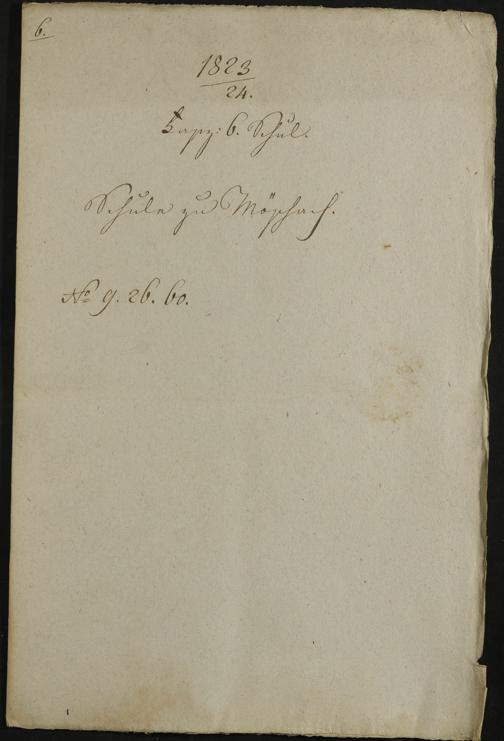 6.
1823
24.
6. Schul.
Schule zu
No 9. 26. 60.